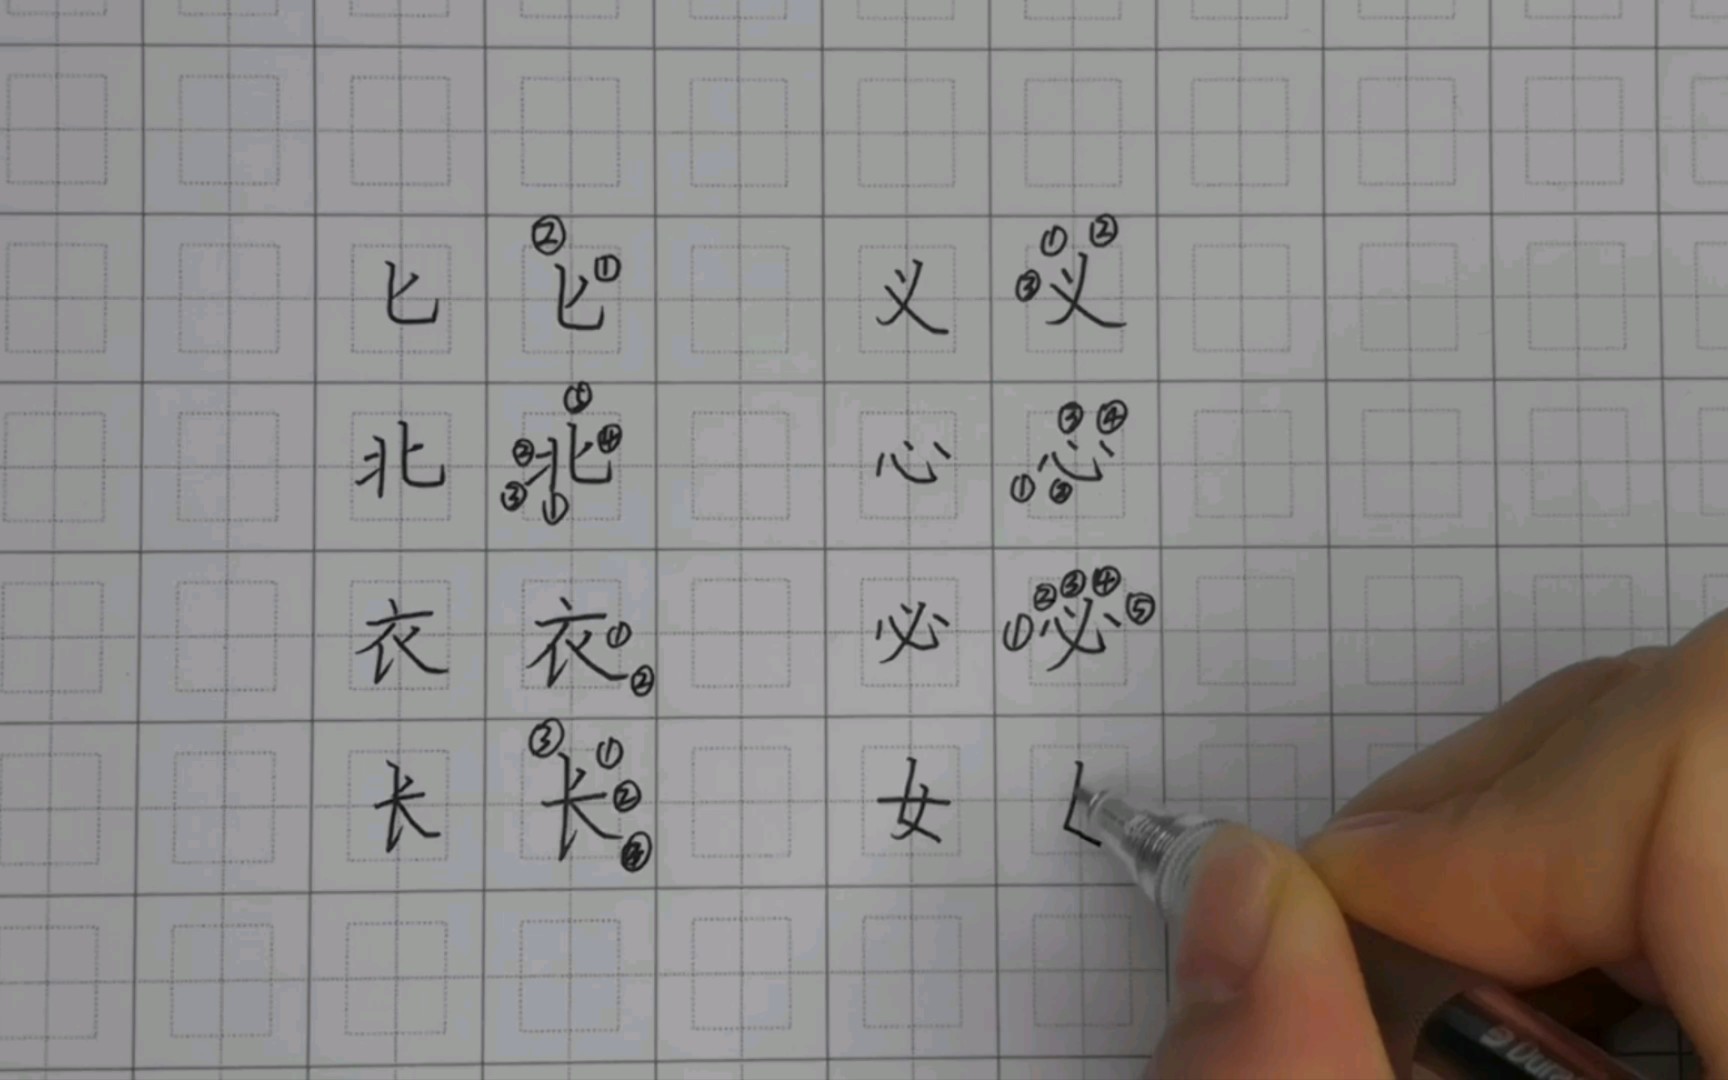 ② ① ① ②
匕 匕 义 ③ 义
⑤ ③ ④
北 ② 北 ④ 心 心
③ ① ① ②
② ③ ④
衣 衣 ① 必 ① 必 ⑤
②
③ ①
长 长 ② 女